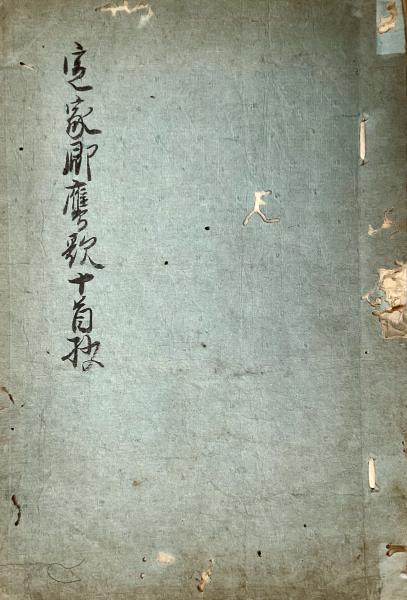 定家卿鷹歌十首抄